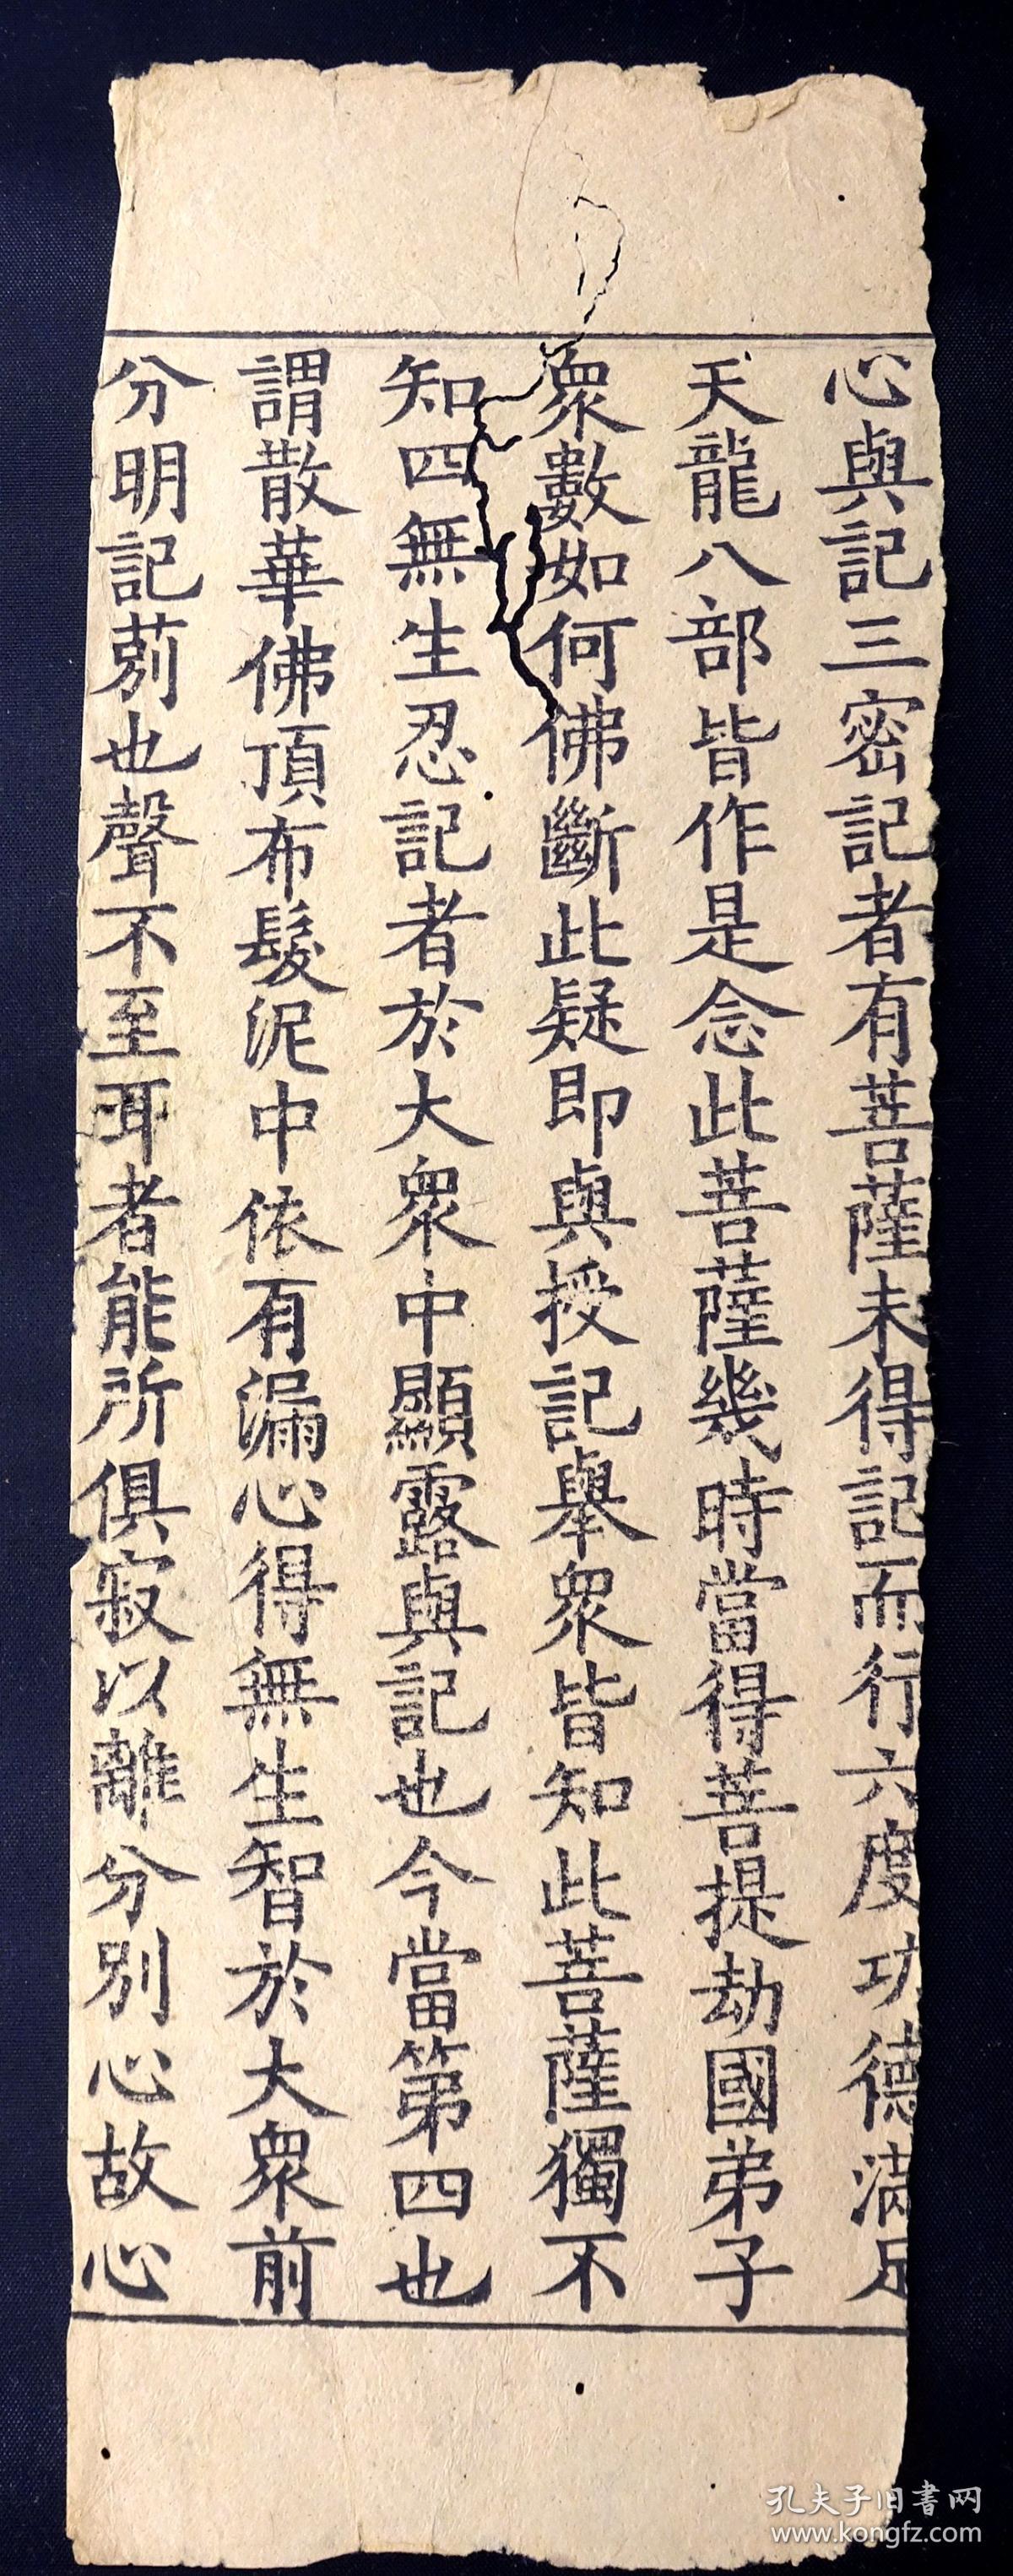 心與記三密記者有菩薩未得記而行六度功德滿足
天龍八部皆作是念此菩薩幾時當得菩提劫國弟子
衆數如何佛斷此疑即與授記舉衆皆知此菩薩獨不
知四無生忍記者於大衆中顯露與記也今當第四也
謂散華佛頂布髮泥中依有漏心得無生智於大衆前
分明記莂也聲不至耳者能所俱寂以離分別心故心
孔夫子旧書网
www.kongfz.com